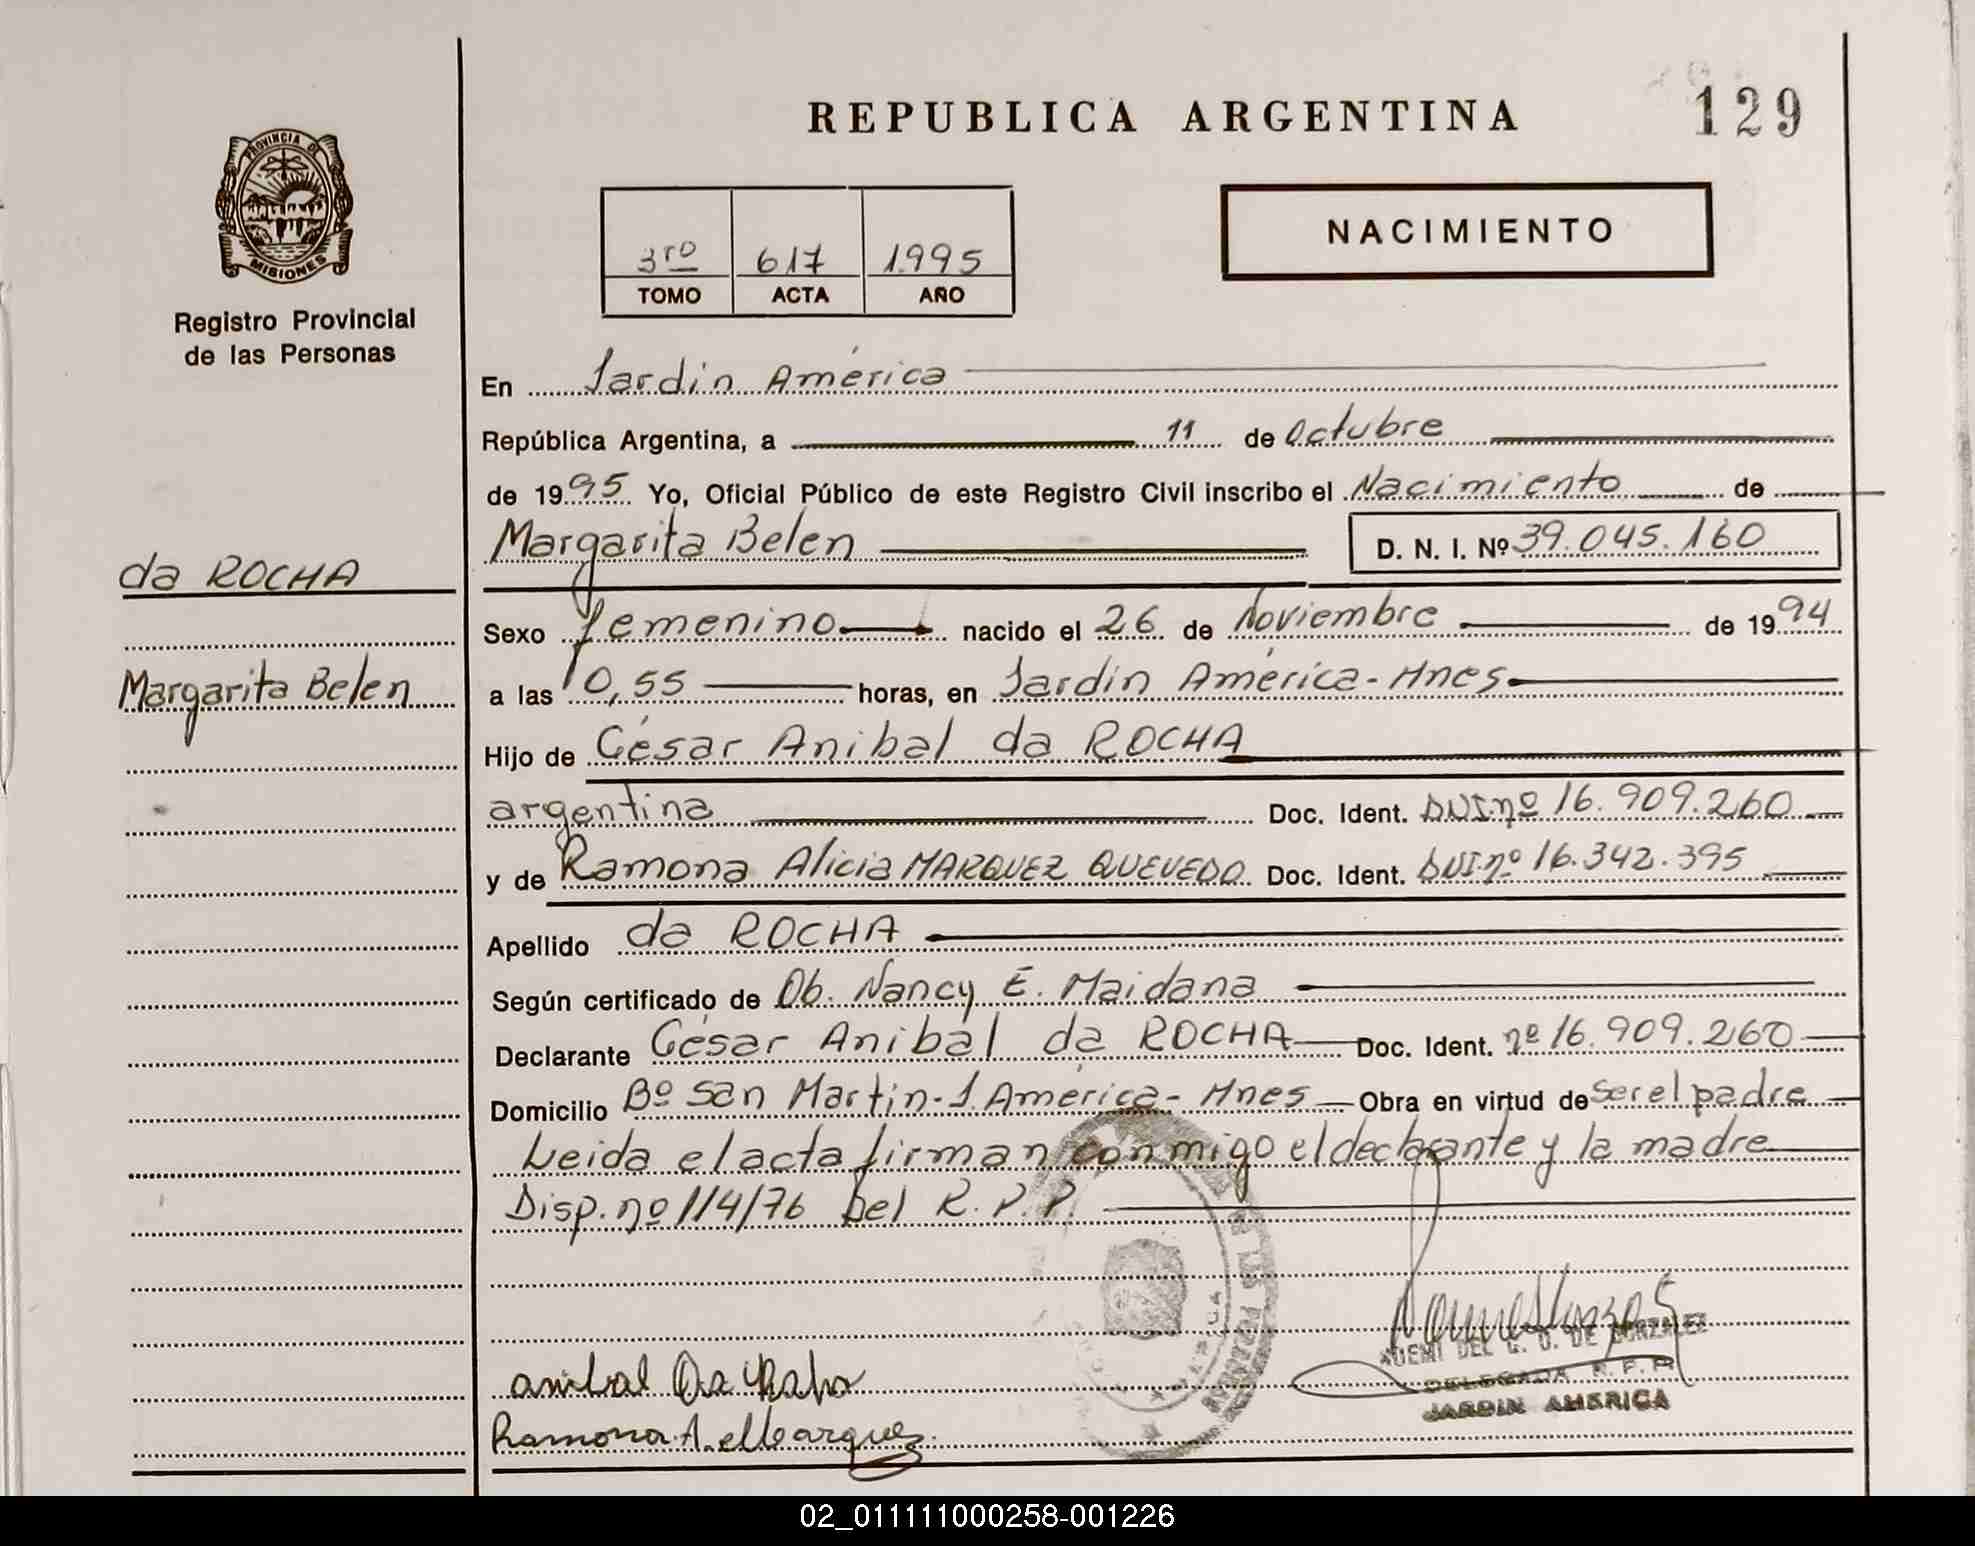 REPUBLICA ARGENTINA
129
PROVINCIA DE
MISIONES
Registro Provincial
de las Personas
3ro 617 1995
TOMO ACTA AÑO
NACIMIENTO
En Jardín América
República Argentina, a 11 de Octubre
de 1995 Yo, Oficial Público de este Registro Civil inscribo el Nacimiento de
Margarita Belen D. N. I. Nº 39.045.160
da ROCHA
Sexo femenino nacido el 26 de Noviembre de 1994
Margarita Belen
a las 0,55 horas, en Jardín América - Mnes
Hijo de César Anibal da ROCHA
argentina Doc. Ident. DNI.nº 16.909.260
y de Ramona Alicia MARQUEZ QUEVEDO Doc. Ident. DNI.nº 16.342.395
Apellido da ROCHA
Según certificado de Ob. Nancy E. Maidana
Declarante César Anibal da ROCHA Doc. Ident. nº 16.909.260
Domicilio Bº San Martin - J. América - Mnes Obra en virtud de ser el padre
Leida el acta firman conmigo el declarante y la madre
Disp. nº 114/76 Del R. P. P.
DE LAS PERSONAS
DE GONZALEZ
DELEGADA R. P. P.
JARDIN AMERICA
anibal Da Rocha
Ramona A. Marquez
02_011111000258-001226